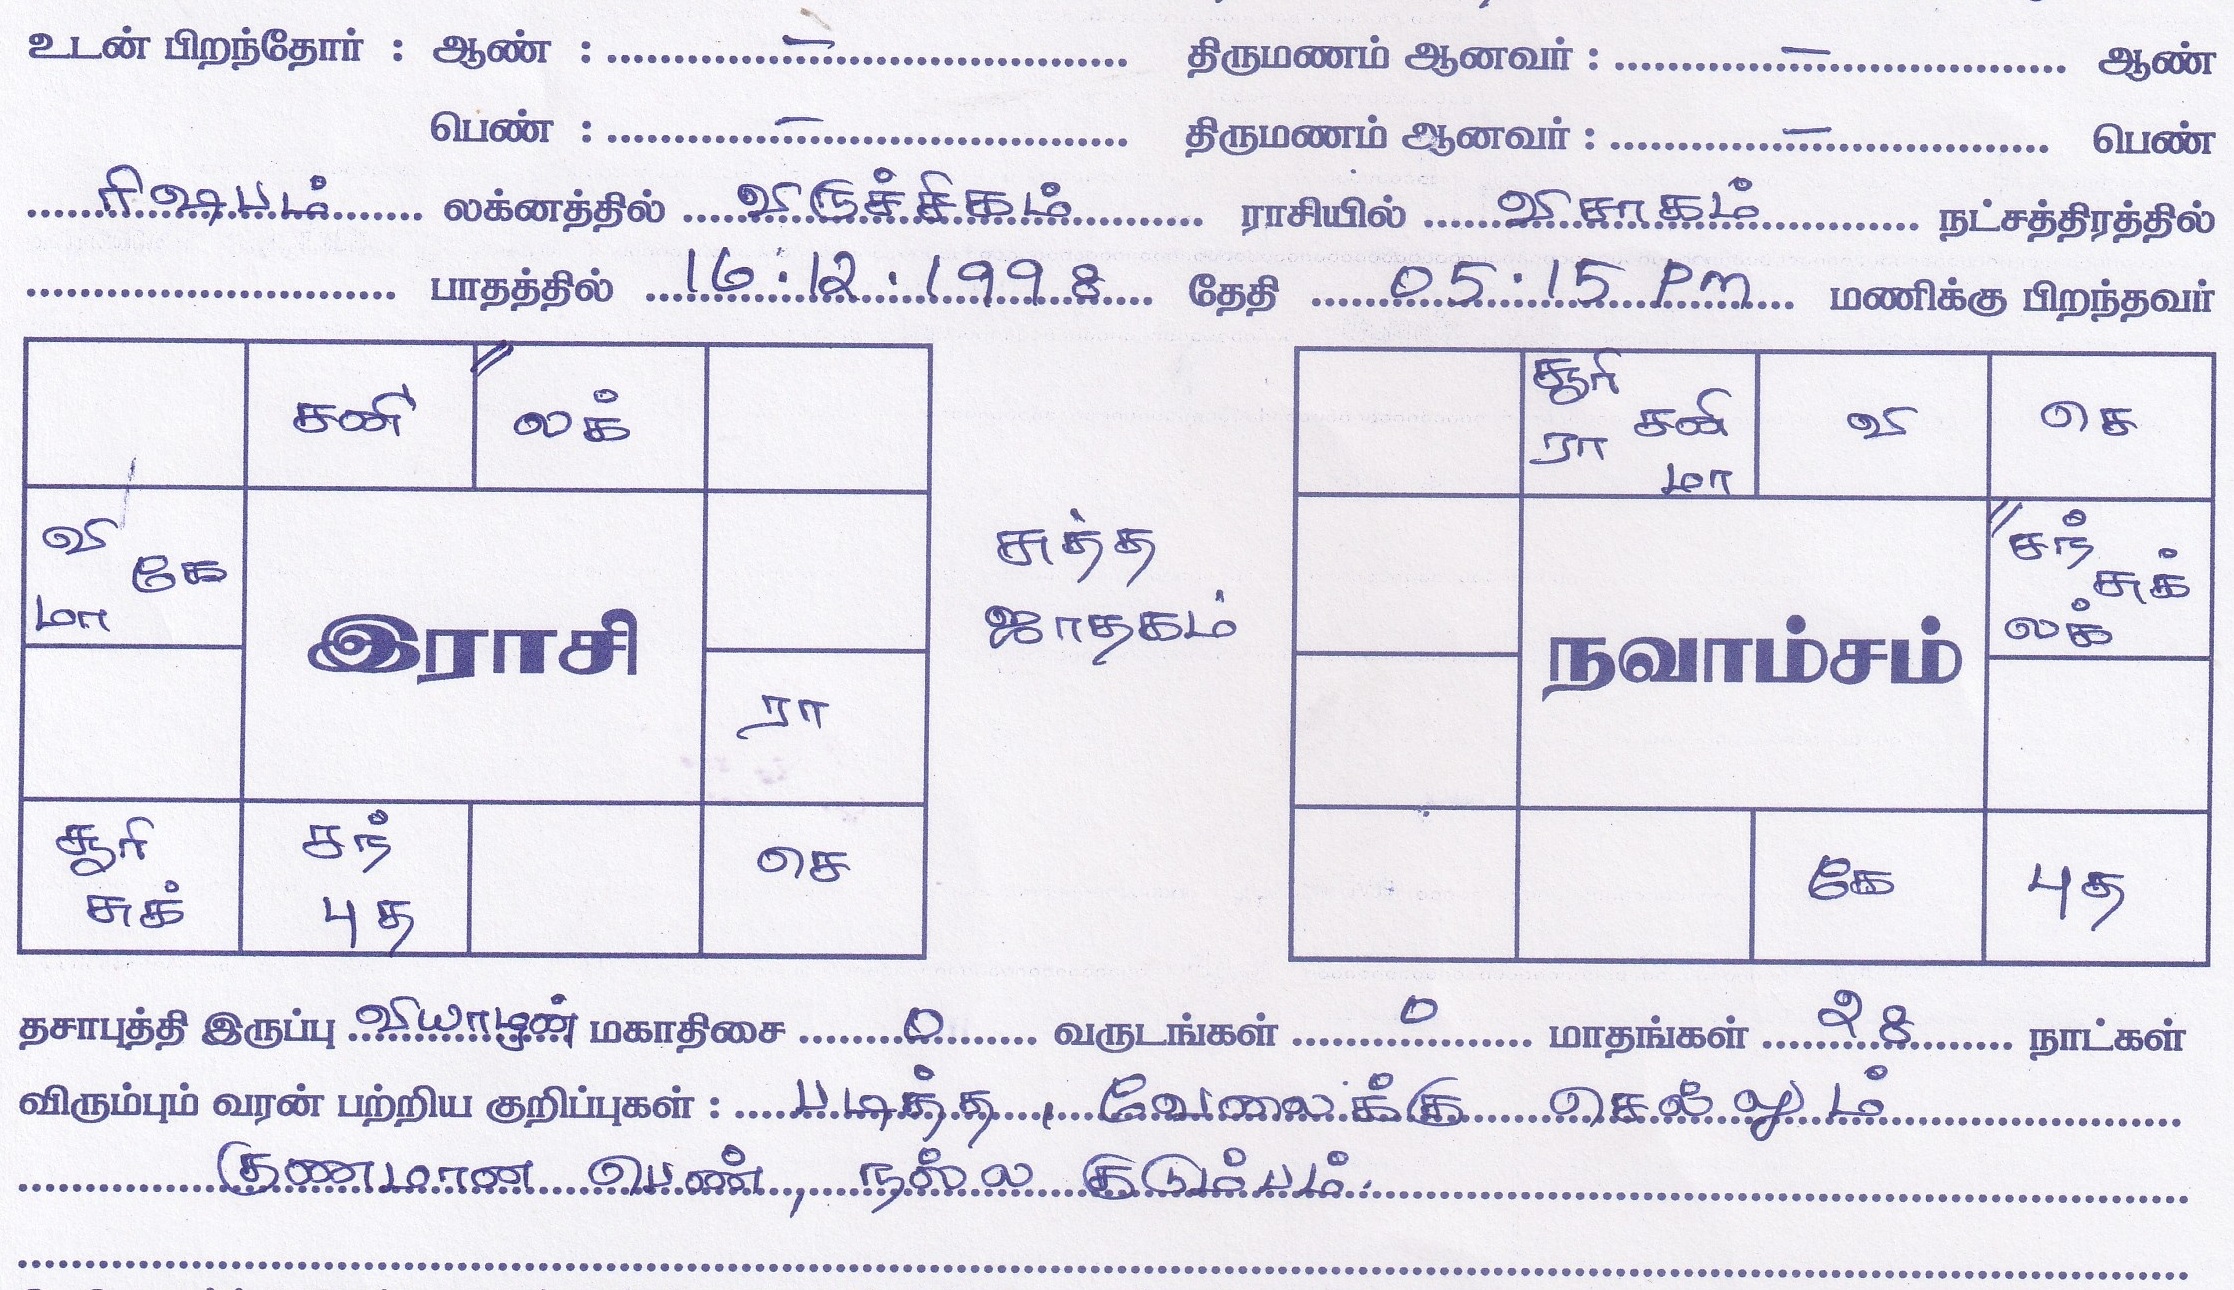 உடன் பிறந்தோர் : ஆண் : ............–............ திருமணம் ஆனவர் : ............–............ ஆண்
பெண் : ............–............ திருமணம் ஆனவர் : ............–............ பெண்
ரிஷபம் லக்னத்தில் விருச்சிகம் ராசியில் விசாகம் நட்சத்திரத்தில்
............ பாதத்தில் 16.12.1998 தேதி 05.15 Pm மணிக்கு பிறந்தவர்
சனி லக்
வி கே மா
இராசி
ரா
சூரி சுக் சந் புத செ
சுத்த
ஜாதகம்
சூரி ரா சனி மா வி செ
சந் சுக் லக்
நவாம்சம்
கே புத
தசாபுத்தி இருப்பு வியாழன் மகாதிசை 0 வருடங்கள் 0 மாதங்கள் 28 நாட்கள்
விரும்பும் வரன் பற்றிய குறிப்புகள் : படித்த, வேலைக்கு செல்லும்
குணமான பெண், நல்ல குடும்பம்.